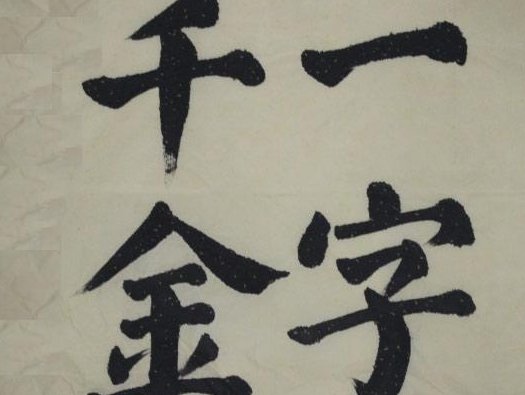 一字
千金